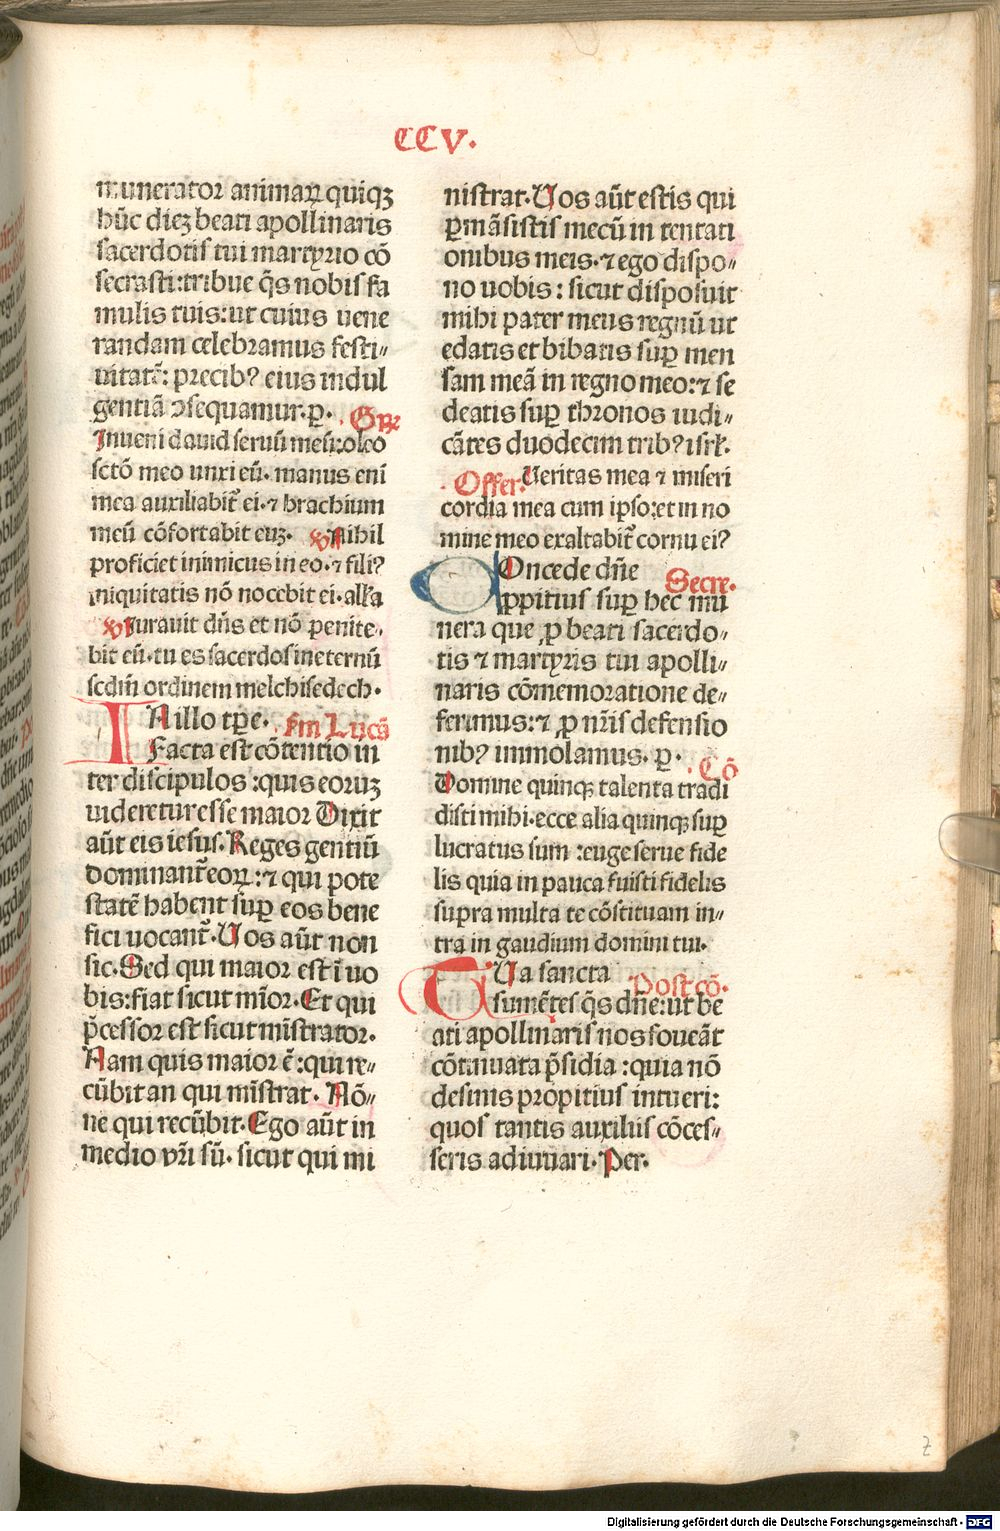 CCV.
munerator animaꝝ quiqꝫ
hūc dieꝫ beati apollinaris
sacerdotis tui martyrio cō
secrasti: tribue q̄s nobis fa
mulis tuis: ut cuius uene
randam celebramus festi〃
uitatē: precibꝰ eius indul
gentiā ↄsequamur. p̱. Gr̄
Inueni dauid seruū meū: oleo
sctō meo unxi eū. manus eni
mea auxiliabit̄ ei. ⁊ brachium
meū cōfortabit euꝫ. ℣ Nihil
proficiet inimicus in eo. ⁊ filiꝰ
iniquitatis nō nocebit ei. all̄a
℣ Jurauit dn̄s et nō penite〃
bit eū. tu es sacerdos in eternū
scdm̄ ordinem melchisedech.
IN illo tp̄e. scd̄m Lucā
Facta est cōtentio in
ter discipulos: quis eoruꝫ
uideretur esse maior Dixit
aūt eis iesus. Reges gentiū
dominant̄ eoꝝ: ⁊ qui pote
statē habent sup̱ eos bene
fici uocant̄. Uos aūt non
sic. Sed qui maior est ī uo
bis: fiat sicut mīor. Et qui
p̄cessor est sicut mīstrator.
Nam quis maior ē: qui re〃
cūbit an qui mīstrat. Nō〃
ne qui recūbit. Ego aūt in
medio vr̄i sū. sicut qui mi
nistrat. Uos aūt estis qui
p̱māsistis mecū in tentati
onibus meis. ⁊ ego dispo〃
no uobis: sicut disposuit
mihi pater meus regnū ut
edatis et bibatis sup̱ men
sam meā in regno meo: ⁊ se
deatis sup̱ thronos iudi〃
cātes duodecim tribꝰ isrl̄.
Offer. Ueritas mea ⁊ miseri
cordia mea cum ipso: et in no
mine meo exaltabit̄ cornu eiꝰ
COncede dn̄e Secre.
p̱pitius sup̱ hec mu
nera que p̱ beati sacerdo〃
tis ⁊ martyris tui apolli〃
naris cōmemoratione de〃
ferimus: ⁊ ꝓ nr̄is defensio
nibꝰ immolamus. p̱. Cō
Domine quinqꝫ talenta tradi
disti mihi. ecce alia quinqꝫ sup̱
lucratus sum: euge serue fide
lis quia in pauca fuisti fidelis
supra multa te cōstituam in〃
tra in gaudium domini tui.
TUa sancta Post cō.
sumētes q̄s dn̄e: ut be
ati apollinaris nos foueāt
cōtinuata p̄sidia: quia nō
desinis propitius intueri:
quos tantis auxiliis cōces〃
seris adiuuari. Per.
z
Digitalisierung gefördert durch die Deutsche Forschungsgemeinschaft - DFG